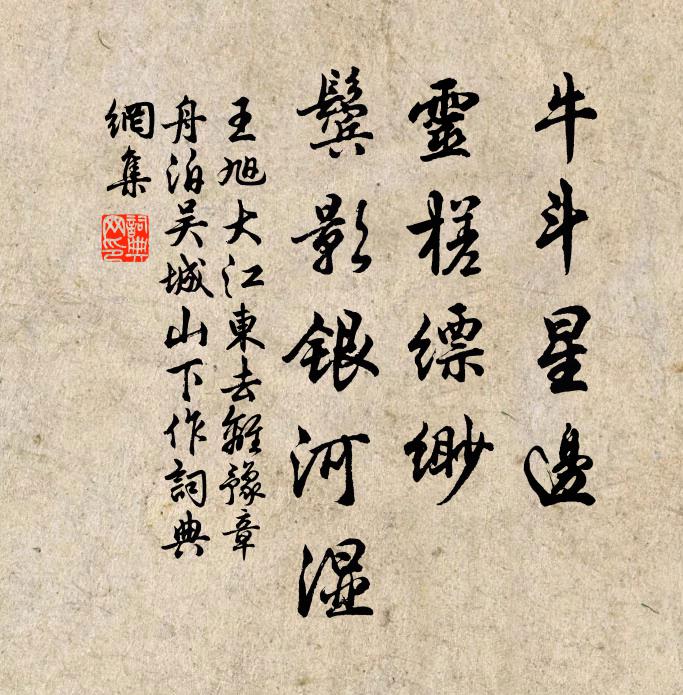 牛斗星邊
靈槎縹緲
鬓影銀河濕
王旭大江東去離豫章
舟泊吴城山下作詞典
網集
詞典
网印